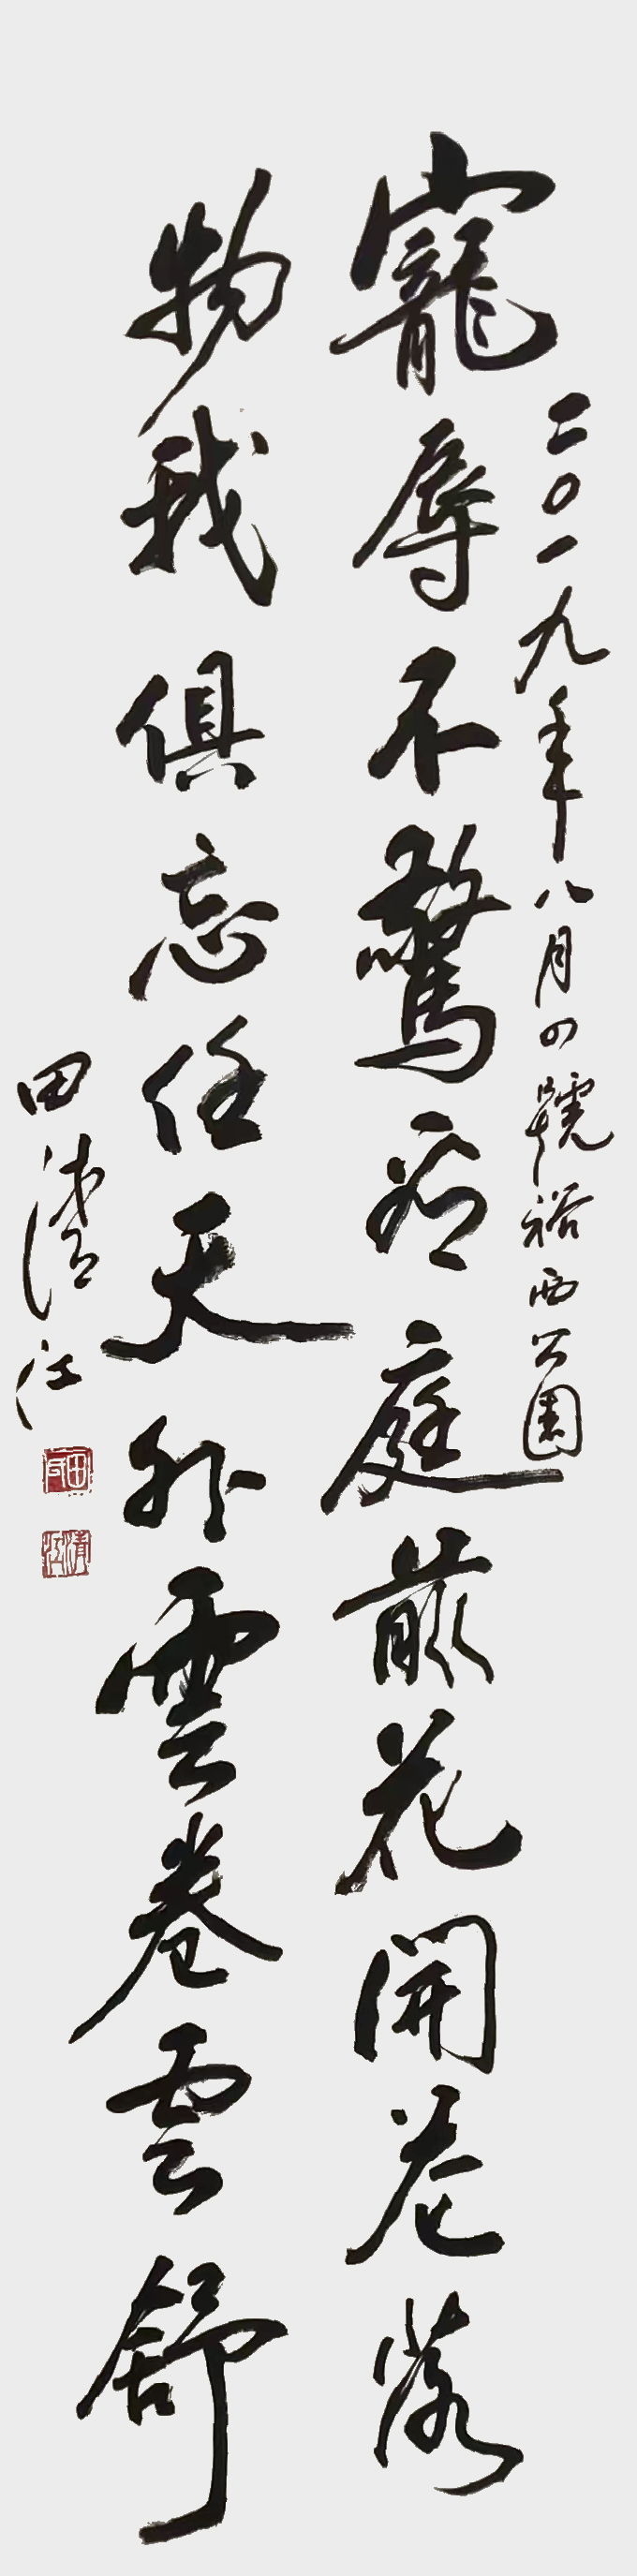 二〇一九年八月四號裕西公園
寵辱不驚看庭前花開花落
物我俱忘任天外雲卷雲舒
田清江
清江